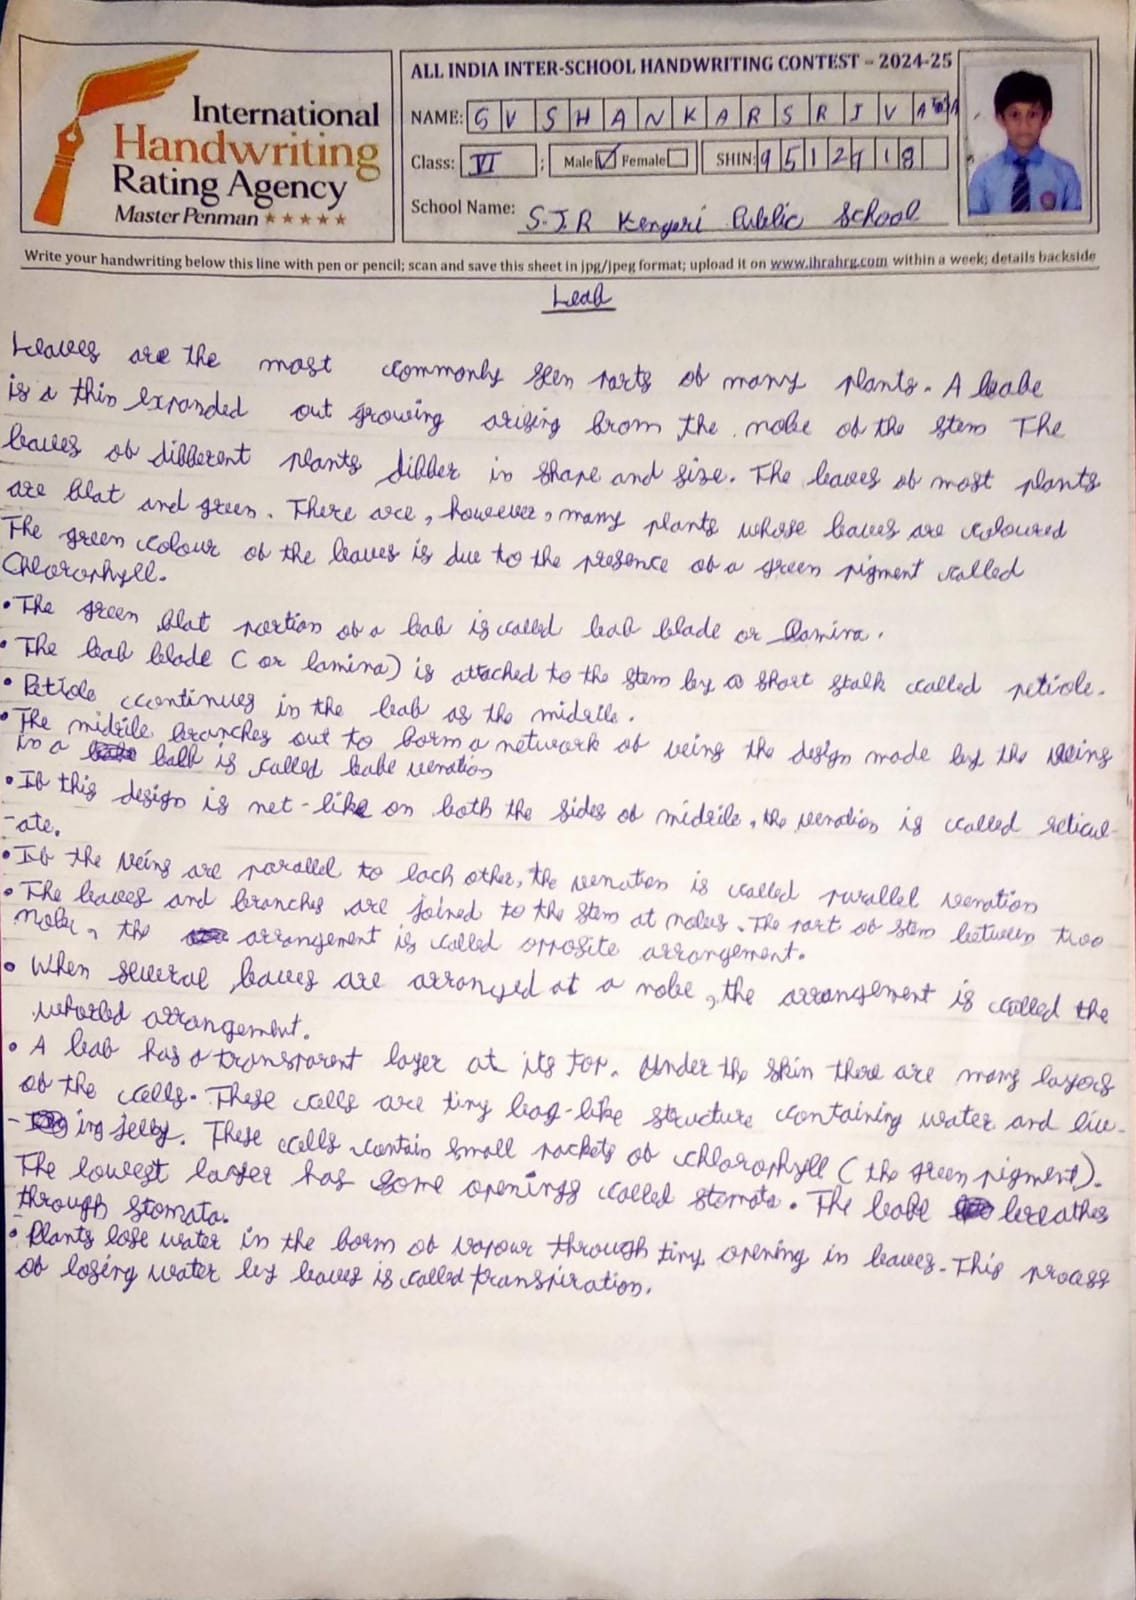 International
Handwriting
Rating Agency
Master Penman ★★★★★
ALL INDIA INTER-SCHOOL HANDWRITING CONTEST – 2024-25
NAME: G V S H A N K A R S R I V A
Class: VI : Male ☑ Female ☐ SHIN: 9 5 1 2 9 1 8
School Name: S.J.R Kengeri Public School
Write your handwriting below this line with pen or pencil; scan and save this sheet in jpg/jpeg format; upload it on www.ihrahrg.com within a week; details backside
Leaf
Leaves are the most commonly seen parts of many plants. A leafe
is a thin expanded out growing arising from the node of the stem The
leaves of different plants differ in shape and size. The leaves of most plants
are flat and green. There are, however, many plants whose leaves are coloured
The green colour of the leaves is due to the presence of a green pigment called
Chlorophyll.
• The green flat portion of a leaf is called leaf blade or lamina.
• The leaf blade ( or lamina) is attached to the stem by a short stalk called petiole.
• Petiole continues in the leaf as the midrile.
• The midrile branches out to form a network of veins the design made by the veins
in a is called leafe venation
• If this design is net-like on both the sides of midrile, the venation is called reticul-
-ate.
• If the veins are parallel to each other, the venation is called parallel venation
• The leaves and branches are joined to the stem at nodes. The part of stem between two
node, the arrangement is called opposite arrangement.
• When several leaves are arranged at a node, the arrangement is called the
whorled arrangement.
• A leaf has a transparent layer at its top. Under the skin there are many layers
of the cells. These cells are tiny bag-like structure containing water and liv-
- ing jelly. These cells contain small packets of chlorophyll ( the green pigment).
The lowest layer has some openings called stomata. The leafe breathes
through stomata.
• Plants lose water in the form of vapour through tiny opening in leaves. This process
of losing water by leaves is called transpiration.